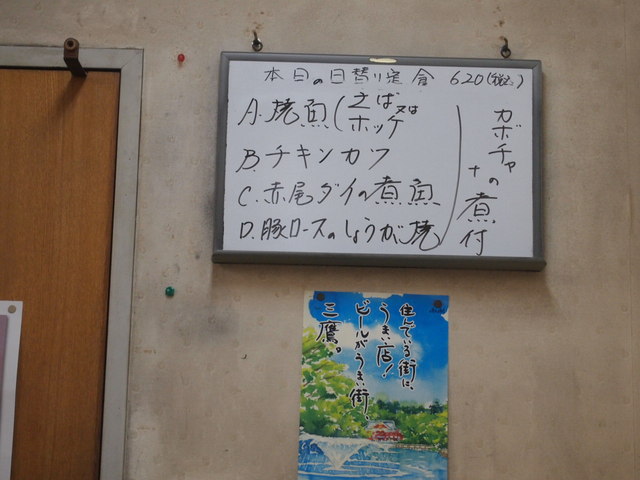 本日の日替り定食 620(税込)
A.焼魚(さば又は
ホッケ
B.チキンカツ
C.赤尾ダイの煮魚
D.豚ロースのしょうが焼
+カボチャの煮付
住んでいる街に、
うまい店!
ビールがうまい街、
三鷹。